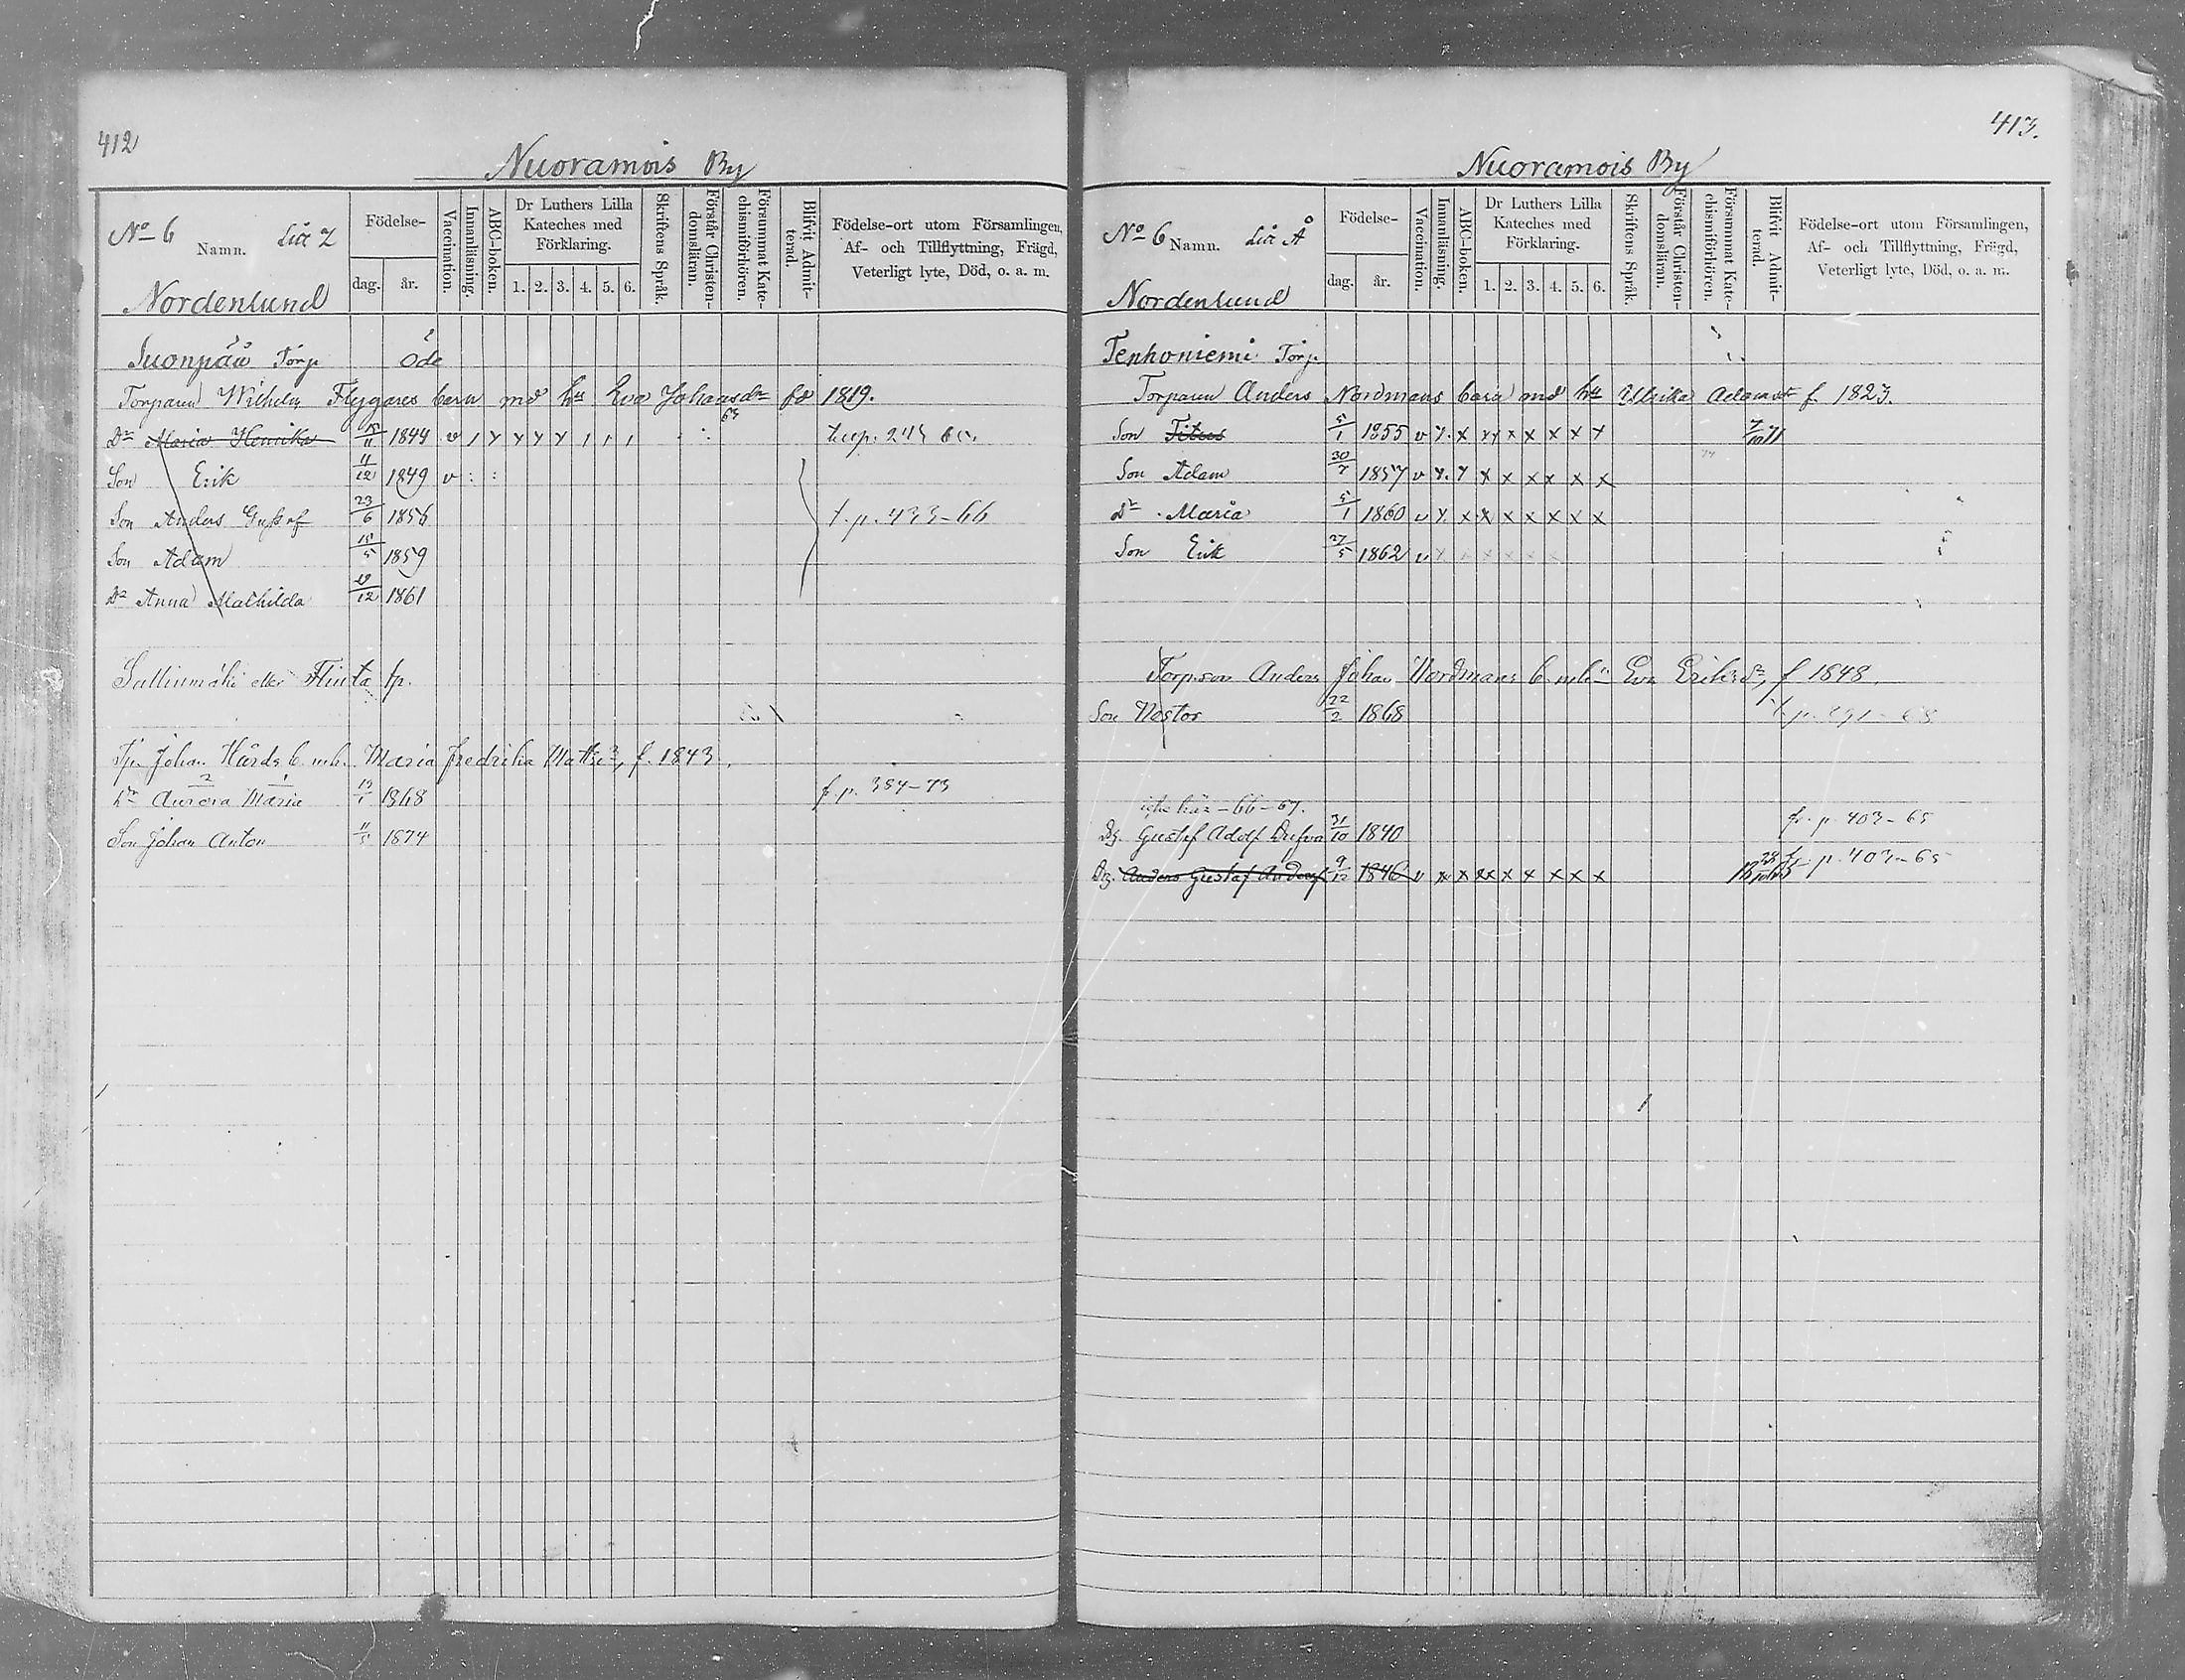 412
Nuoramois By
No 6 Namn. Litt Z
Nordenlund
Födelse-
dag. år.
Vaccination.
Innanläsning.
ABC-boken.
Dr Luthers Lilla Kateches med Förklaring.
1. 2. 3. 4. 5. 6.
Skriftens Språk.
Förstår Christendomsläran.
Försummat Katechismiförhören.
Blifvit Admitterad.
Födelse-ort utom Församlingen,
Af- och Tillflyttning, Frägd,
Veterligt lyte, Död, o. a. m.
Suonpää Torp öde
Torparen Wilhelm Flygares barn md hu Eva Johansdr fd 1819.
Dr Maria Henrika 15/11 1844 v
Son Erik 11/12 1849 v
Son Anders Gustaf 23/6 1856 t. p. 433-66
Son Adam 15/5 1859
Dr Anna Mathilda /12 1861
Sallinmäki eller Flinta tp.
Tp. Johan Hårds b. mh. Maria Fredrika Matts f. 1843.
dr Aurora Maria 1868 f. p. 384-73
Son Johan Anton 11/5 1874
413.
Nuoramois By
No 6 Namn. Litt Å
Nordenlund
Födelse-
dag. år.
Vaccination.
Innanläsning.
ABC-boken.
Dr Luthers Lilla Kateches med Förklaring.
1. 2. 3. 4. 5. 6.
Skriftens Språk.
Förstår Christendomsläran.
Försummat Katechismiförhören.
Blifvit Admitterad.
Födelse-ort utom Församlingen,
Af- och Tillflyttning, Frägd,
Veterligt lyte, Död, o. a. m.
Tenhoniemi Torp.
Torparen Anders Nordmans barn md hu Ulrika Adamsdr f. 1823.
Son Titus 5/1 1855 v 7/10 71
Son Adam 30/7 1857 v
Dr Maria 5/1 1860 v
Son Erik 27/5 1862 v
Torp.son Anders Johan Nordmans b. mh Eva Eriksdr, f 1848.
Son Nestor 22/2 1868
icke här - 66-67.
Dg. Gustaf Adolf 31/10 1840 fr. p. 403-65
Drg. Anders Gustaf 9/12 1846 v fr p. 403-65